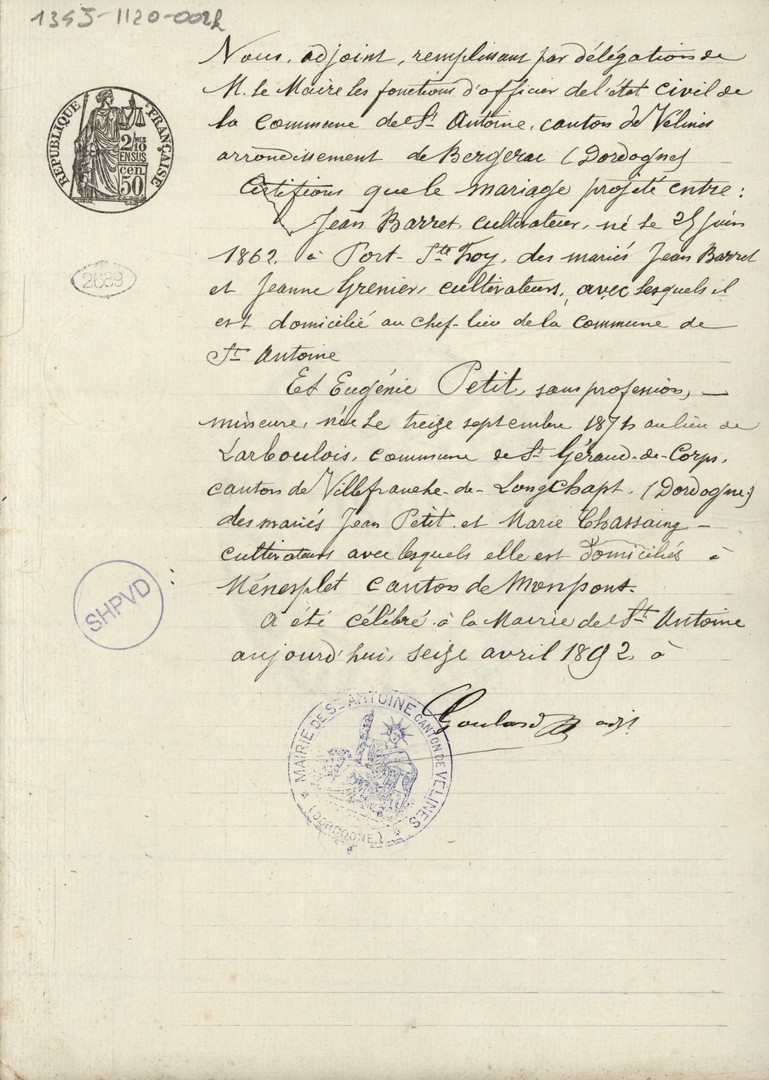 1345-1120-0022
Nous, adjoint, remplissant par délégation de
M. le Maire les fonctions d'officier de l'état civil de
la commune de St Antoine, canton de Vélines
arrondissement de Bergerac (Dordogne)
Certifions que le mariage projeté entre :
Jean Barret, cultivateur, né le 25 juin
1862 à Port-Ste Foy, des mariés Jean Barret
et Jeanne Grenier, cultivateurs, avec lesquels il
est domicilié au chef-lieu de la commune de
St Antoine
Et Eugénie Petit, sans profession, —
mineure, née le treize septembre 1874 au lieu de
Larboulois, commune de St Géraud-de-Corps,
canton de Villefranche-de-Longchapt, (Dordogne)
des mariés Jean Petit et Marie Chassaing —
cultivateurs avec lesquels elle est domiciliés à
Ménesplet canton de Monpont.
A été célébré à la Mairie de St Antoine
aujourd'hui, seize avril 1892 à
Goulard adjt
RÉPUBLIQUE FRANÇAISE
2/10 EN SUS
50 cen
2689
SHPVD
MAIRIE DE ST ANTOINE CANTON DE VELINES
(DORDOGNE)